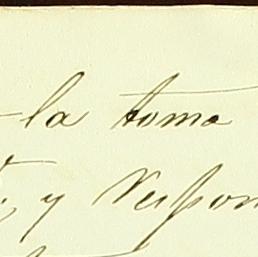 la toma
y Respon